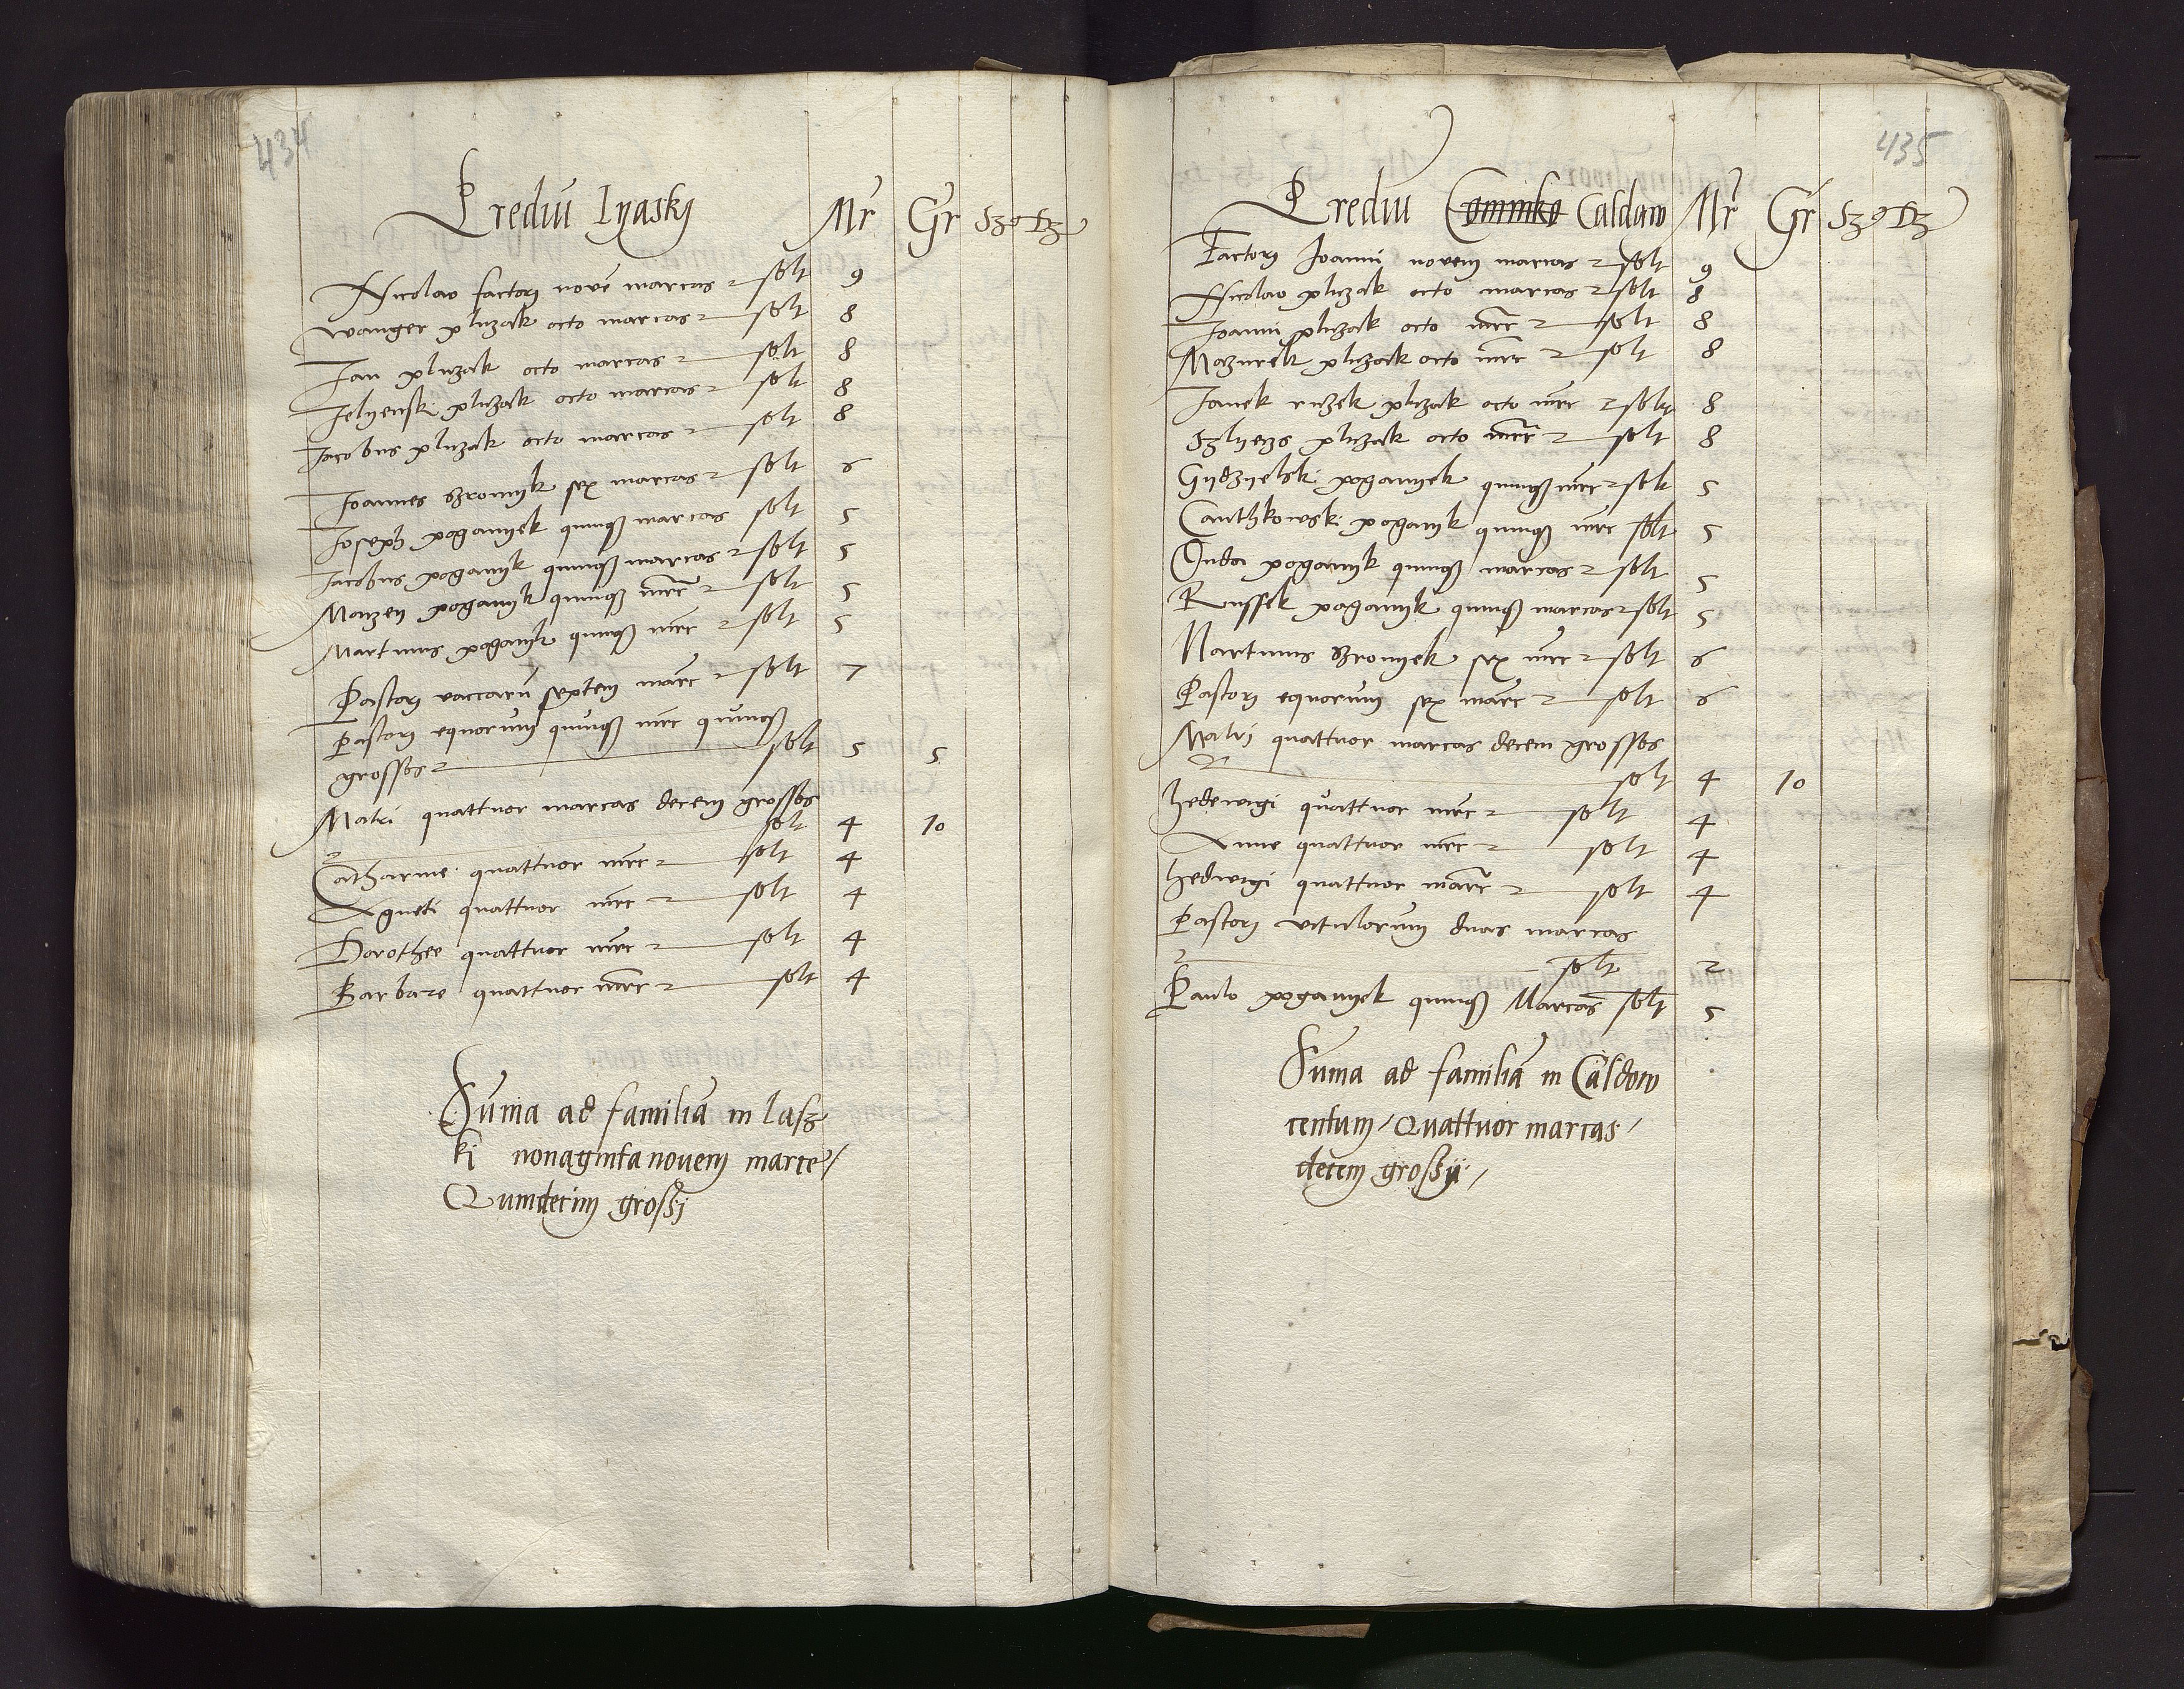 434
Prediũ Lyasky Mr Gr Sz δ Tz
Nicolao factori novē marcas solt 9
Wanger pluzak octo marcas solt 8
Jan pluzak octo marcas solt 8
Jelyenski pluzak octo marcas solt 8
Jacobus pluzak octo marcas solt 8
Joannes bzronyk sex marcas solt 6
Joseph poganyek quinqȝ marcas solt 5
Jacobus poganyk quinqȝ marcas solt 5
Maczey poganyk quinqȝ mrc solt 5
Martinus poganyk quinqȝ mrc solt 5
Pastori vaccarū septem marc solt 7
Pastori equorum quinqȝ mrc quinqȝ
grossos solt 5 5
Matri quattuor marcas decem grossos
solt 4 10
Catharine quattuor mrc solt 4
Agneti quattuor mrc solt 4
Dorothee quattuor mrc solt 4
Barbare quattuor mrc solt 4
Sum̄a ad familiā in Lasz
ki nonaginta novem marce
Quindecim grossi
435
Prediũ Cominko Caldaw Mr Gr Sz δ Tz
Factori Joanni novem marcas solt 9
Nicolao pluzak octo marcas solt 8
Joanni pluzak octo mrc solt 8
Mazurek pluzak octo mrc solt 8
Janek ruzek pluzak octo mrc solt 8
Szlyezs pluzak octo mrc solt 8
Gydzyelski poganyek quinqȝ mrc solt 5
Canthkowski poganyk quinqȝ mrc solt 5
Duda poganyk quinqȝ marcas solt 5
Russek poganyk quinqȝ marcas solt 5
Martinus bzronyek sex mrc solt 6
Pastori equorum sex marc solt 6
Matri quattuor marcas decem grossos
solt 4 10
Hedewigi quattuor mrc solt 4
Anne quattuor mrc solt 4
Hedwigi quattuor marc solt 4
Pastori vitulorum duas marcas
solt 2
Paulo poganyek quinqȝ Marcas solt 5
Sum̄a ad familiā in Caldow
centum quattuor marcas
decem grossy